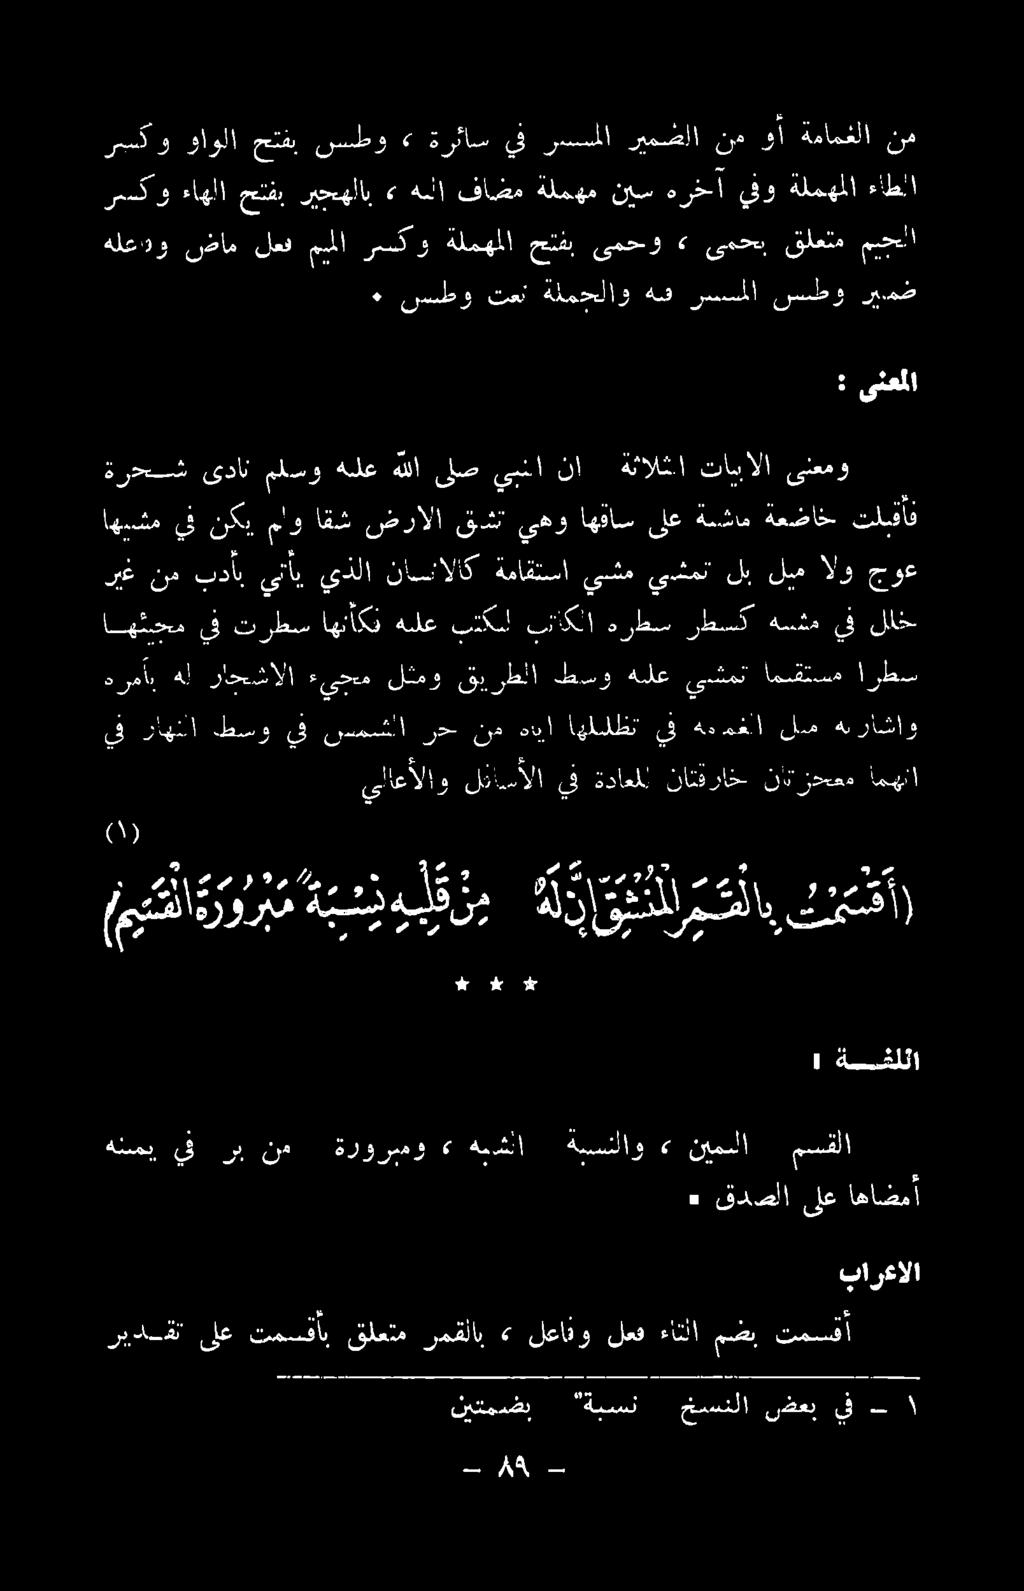 من الغمامة أو من الضمير المستتر في سائرة ، وطيس بفتح الواو وكسر
الطاء المهملة وفي آخره سين مهملة مضاف اليه ، بالهجير بفتح الهاء وكسر
الجيم متعلق بحمي ، وحمي بفتح المهملة وكسر الميم فعل ماض وفاعله
ضمير وطيس المستتر فيه والجملة نعت وطيس .
المعنى :
ومعنى الابيات الثلاثة ان النبي صلى الله عليه وسلم نادى شــجرة
فأقبلت خاضعة ماشية على ساقها وهي تشق الارض شقا ولم يكن في مشيها
عوج ولا ميل بل تمشي مشي استقامة كالانسان الذي يأتي بأدب من غير
خلل في مشيه كسطر سطره الكاتب ليكتب عليه فكأنها سطرت في مجيئهــا
سطرا مستقيما تمشي عليه وسط الطريق ومثل مجيء الاشجار له بأمره
واشارته ميل الغمامة في تظليلها اياه من حر الشمس في وسط النهار في
انهما معجزتان خارقتان للعادة في الأسافل والأعالي
(١)
(أَقْسَمْتُ بِالْقَمَرِ الْمُنْشَقِّ إِنَّ لَهُ مِنْ قَلْبِهِ نِسْبَةً مَبْرُورَةَ الْقَسَمِ)
* * *
اللغــة :
القسم اليمين ، والنسبة الشبه ، ومبرورة من بر في يمينه
أمضاها على الصدق .
الاعراب
أقسمت بضم التاء فعل وفاعل ، بالقمر متعلق بأقسمت على تقــدير
١ - في بعض النسخ نسبة" بضمتين
- ٨٩ -